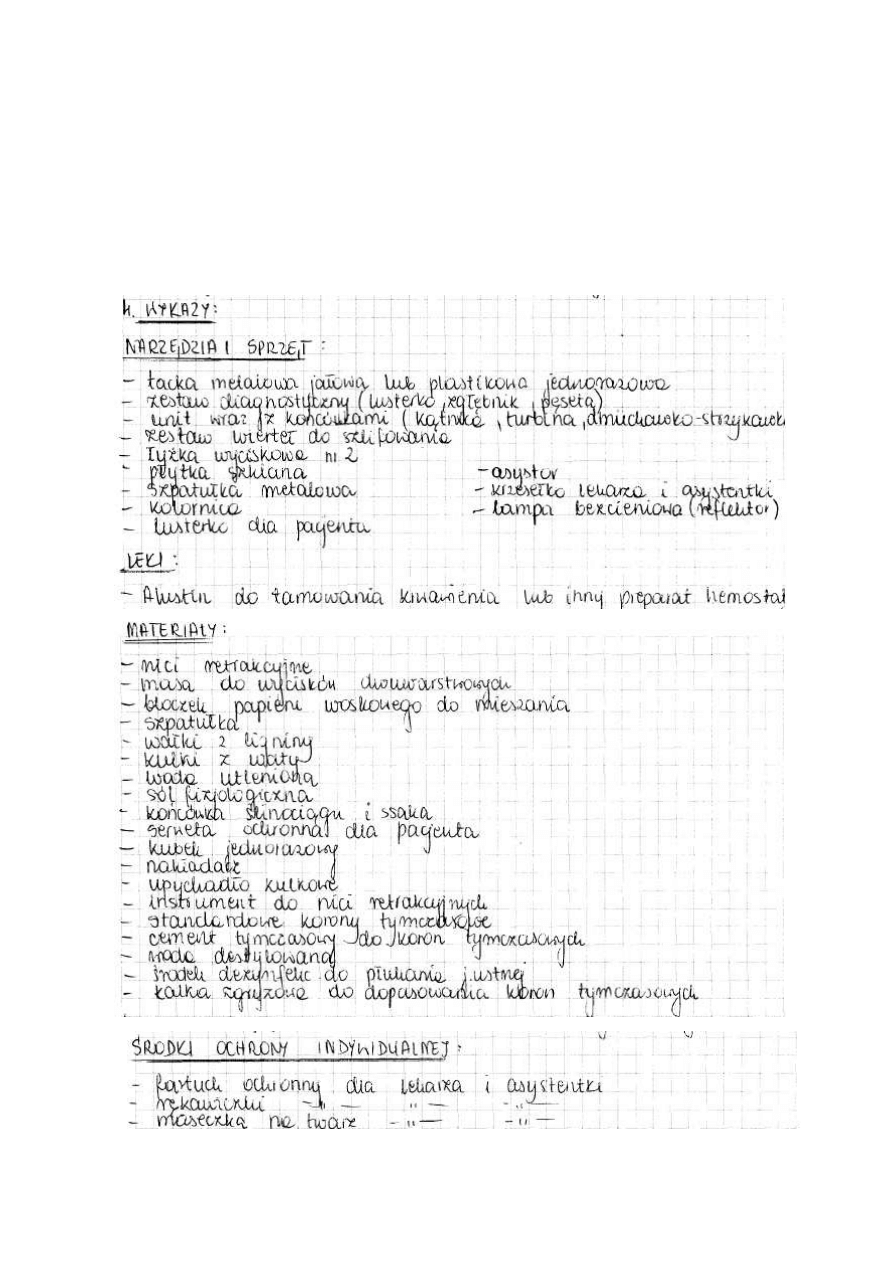 4. WYKAZY:
NARZĘDZIA I SPRZĘT:
- tacka metalowa jałowa lub plastikowa jednorazowa
- zestaw diagnostyczny (lusterko, zgłębnik, pęseta)
- unit wraz z końcówkami (kątnica, turbina, dmuchawko-strzykawk
- zestaw wierteł do szlifowania
- łyżka wyciskowa nr 2
- płytka szklana - asystor
- szpatułka metalowa - krzesełko lekarza i asystentki
- kolornica - lampa bezcieniowa (reflektor)
- lusterko dla pacjenta
LEKI:
- Alustin do tamowania krwawienia lub inny preparat hemostat
MATERIAŁY:
- nici retrakcyjne
- masa do wycisków dwuwarstwowych
- bloczek papieru woskowego do mieszania
- szpatułka
- wałki z ligniny
- kulki z waty
- woda utleniona
- sól fizjologiczna
- końcówka ślinociągu i ssaka
- serweta ochronna dla pacjenta
- kubek jednorazowy
- nakładacz
- upychadło kulkowe
- instrument do nici retrakcyjnych
- standardowe korony tymczasowe
- cement tymczasowy do koron tymczasowych
- woda destylowana
- środek dezynfekc do płukania j.ustnej
- kalka zgryzowa do dopasowania koron tymczasowych
ŚRODKI OCHRONY INDYWIDUALNEJ:
- fartuch ochronny dla lekarza i asystentki
- rękawiczki -„- -„- -„-
- maseczka na twarz -„- -„-